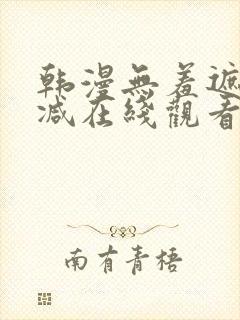 韩漫無羞遮
减在綫觀看
南有青梧